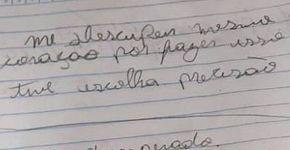 me desculpen mesmo
coração por fazer isso
tive escolha precisão